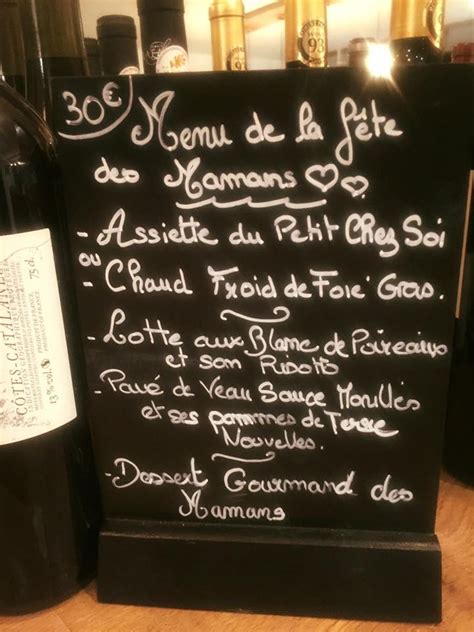 30€
Menu de la fête
des Mamans
- Assiette du Petit Chez Soi
ou
- Chaud Froid de Foie Gras.
- Lotte aux Blanc de Poireaux
et son Risotto
- Pavé de Veau Sauce Morilles
et ses pommes de Terre
Nouvelles.
- Dessert Gourmand des
Mamans
CÔTES-CATALANES
75cl.
13%vol.
93